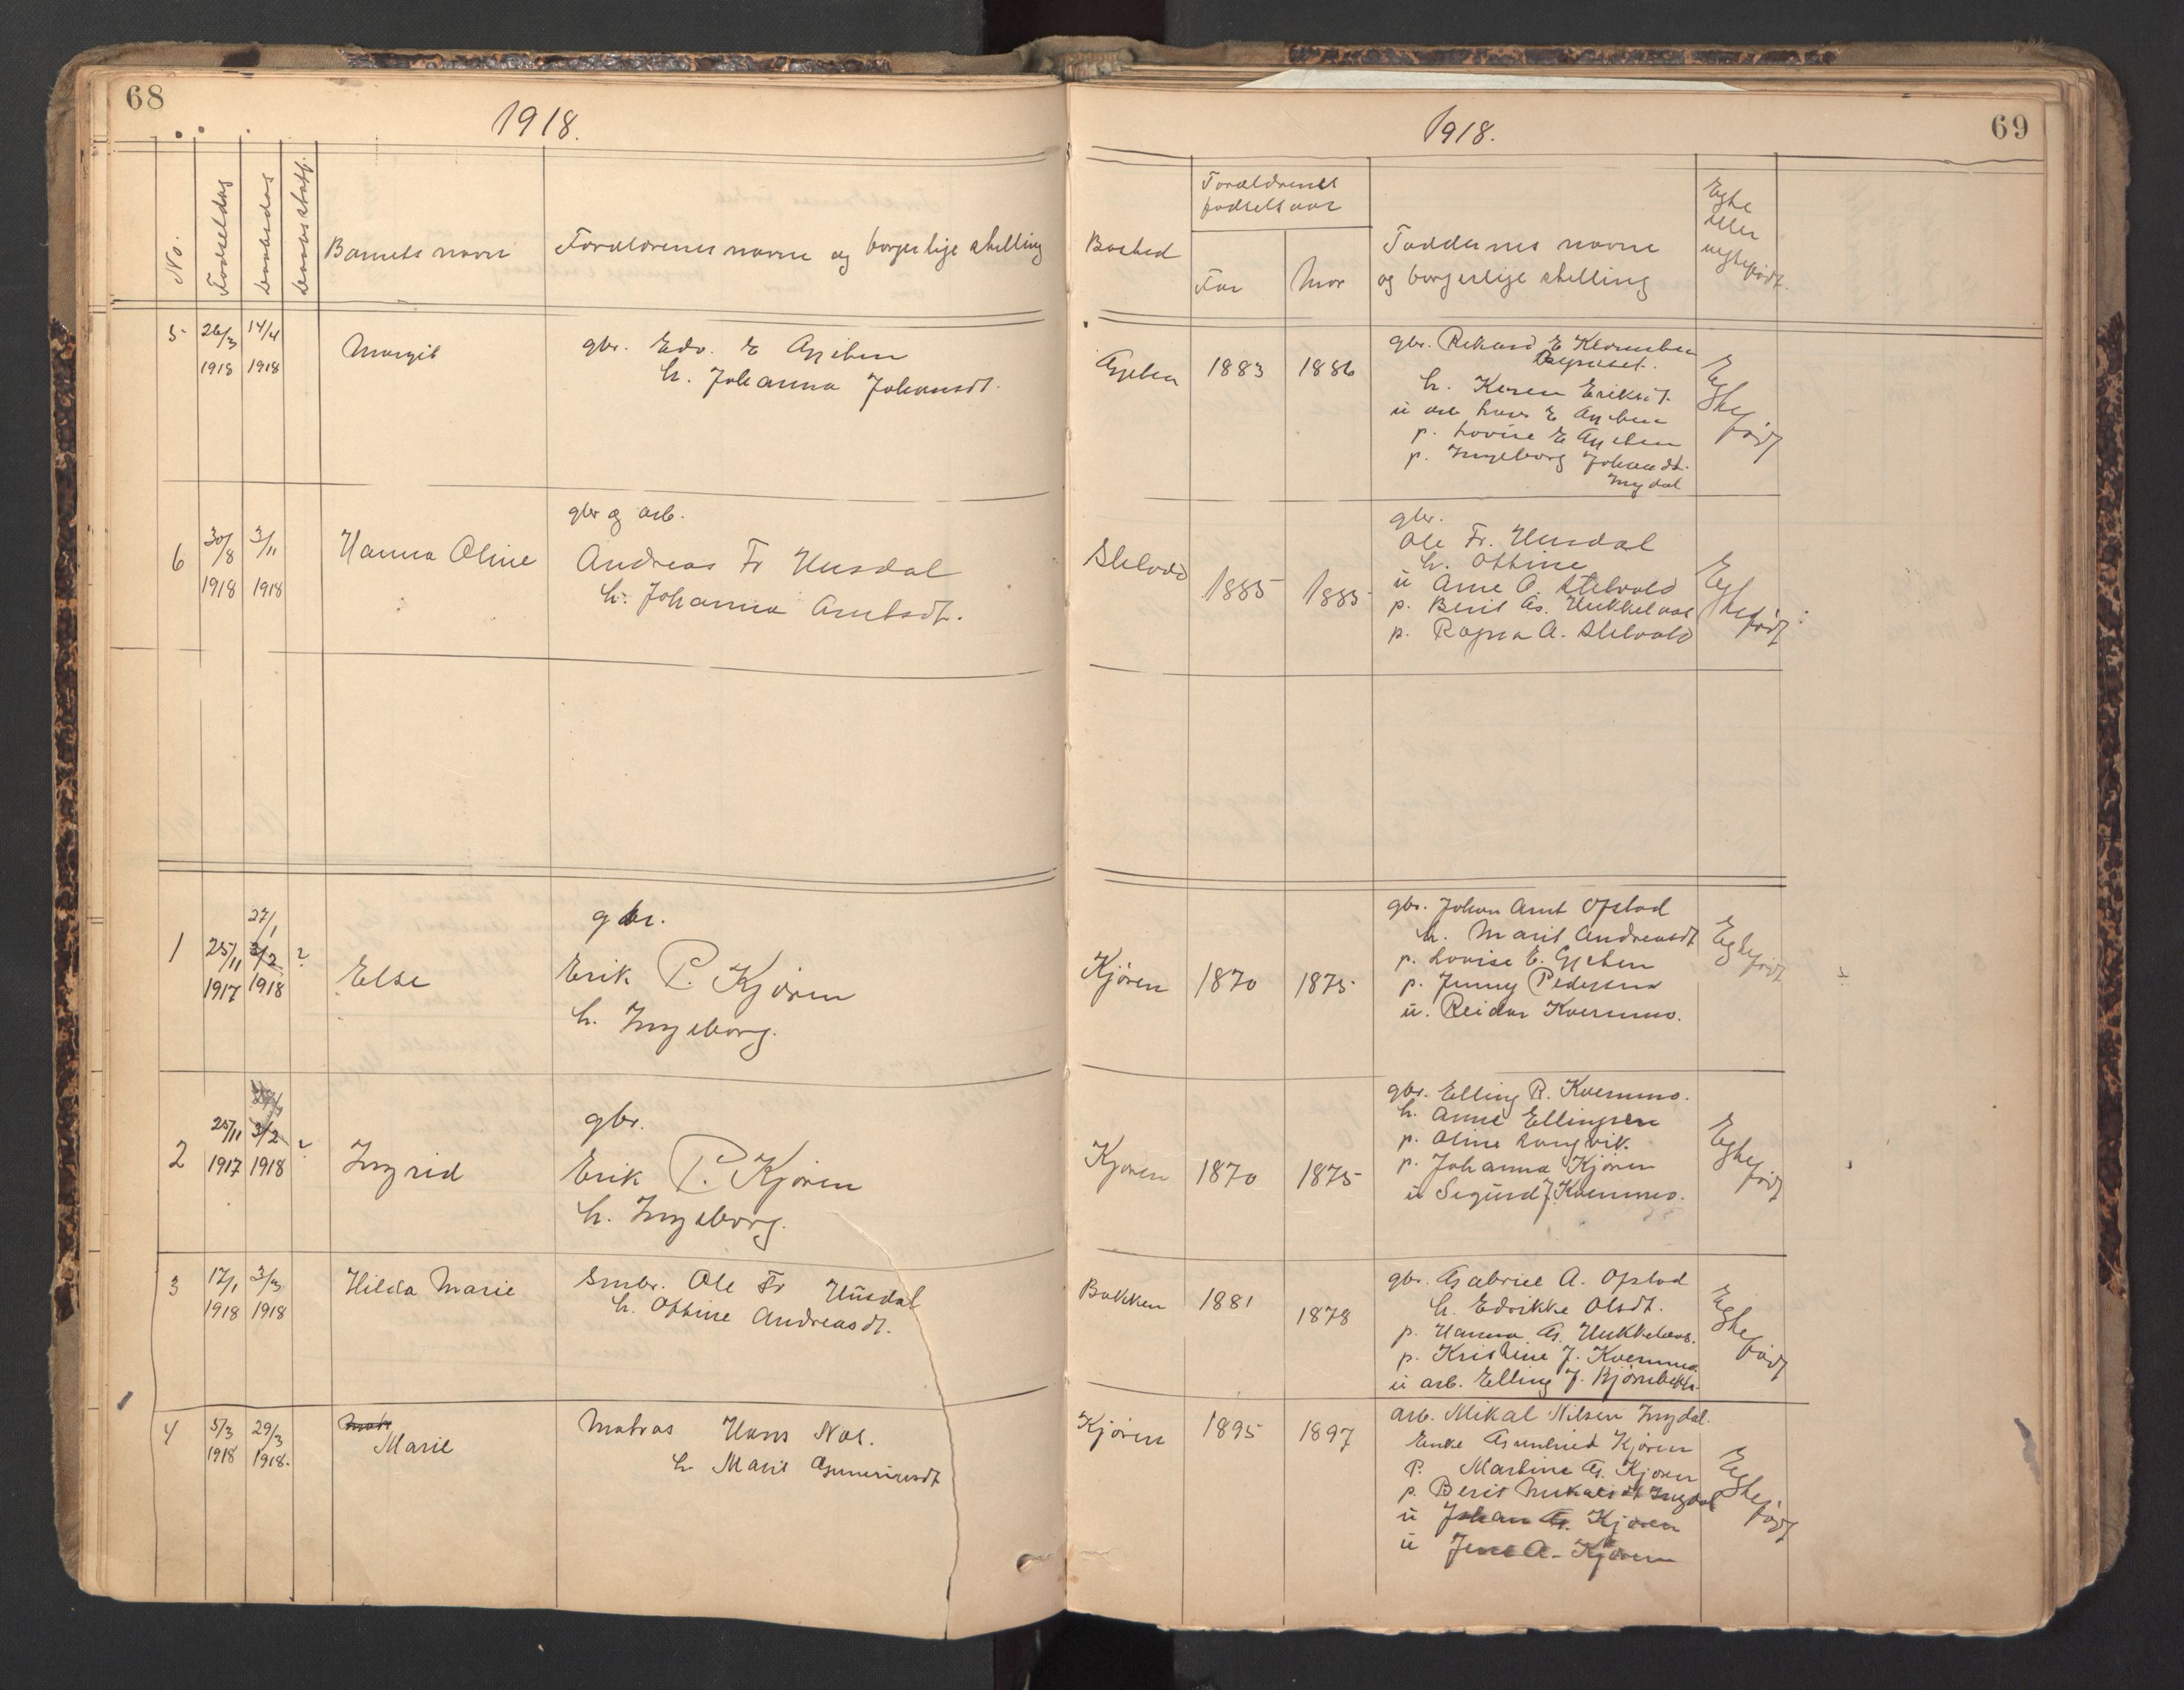 68
1918.
No.
Fødselsdag
Daabsdag
Barnets navn
Forældrenes navne og borgerlige stilling
5 26/3 14/4
1918 1918
Margit
gbr. Edv. E
h. Johanna Johansdt.
6 30/8 3/11
1918 1918
Hanna Oline
gbr og arb.
Andreas Fr Husdal
h. Johanna Arntsdt.
1 25/11 27/1 3/2 ?
1917 1918
Else
gbr.
Erik P. Kjøren
h. Ingeborg.
2 25/11 3/2 ?
1917 1918
Ingrid
gbr.
Erik P. Kjøren
h. Ingeborg.
3 17/1 3/3
1918 1918
Hilda Marie
Smbr. Ole Fr Husdal
h. Oftine Andreasdt.
4 5/3 29/3
1918 1918.
Marie
Matros Hans Nos.
h Marie
69
1918.
Bosted
Forældrenes
fødselsaar
Far
Mor
Faddernes navne
og borgerlige stilling
Egte
eller
uegtefødt.
1883 1886
gbr. Rikard E
h. Karen Eriksdt.
p. Lovise E
p. Ingeborg Johansdt.
Ingdal
Egtefødt
Slelvold 1885 1885
gbr.
Ole Fr. Husdal
h. Oftine
u Arne O. Slelvold
p. Berit
p. Ragna A. Slelvold
Egtefødt
Kjøren 1870 1875
gbr. Johan Arnt Ofstad
h. Marit Andreasdt
p. Lovise E.
p. Jenny Pedersen
u. Reidar Kvernmo.
Egtefødt
Kjøren 1870 1875
gbr. Elling R. Kvernmo.
h. Anne Ellingsen
p. Oline Langvik.
p. Johanna Kjøren
u Sigurd J. Kvernmo.
Egtefødt
Bakken 1881 1878
gbr. Gabriel A. Ofstad
h. Edvikke Olsdt.
p. Hanna G.
p. Kristine J. Kvernmo.
u arb. Elling J.
Egtefødt
Kjøren 1895 1897
arb. Mikal Nilsen Ingdal.
Enke Kjøren
P. Martine G. Kjøren
p. Berit Mikalsdt Ingdal
u Johan G. Kjøren
u Jens A. Kjøren
Egtefødt